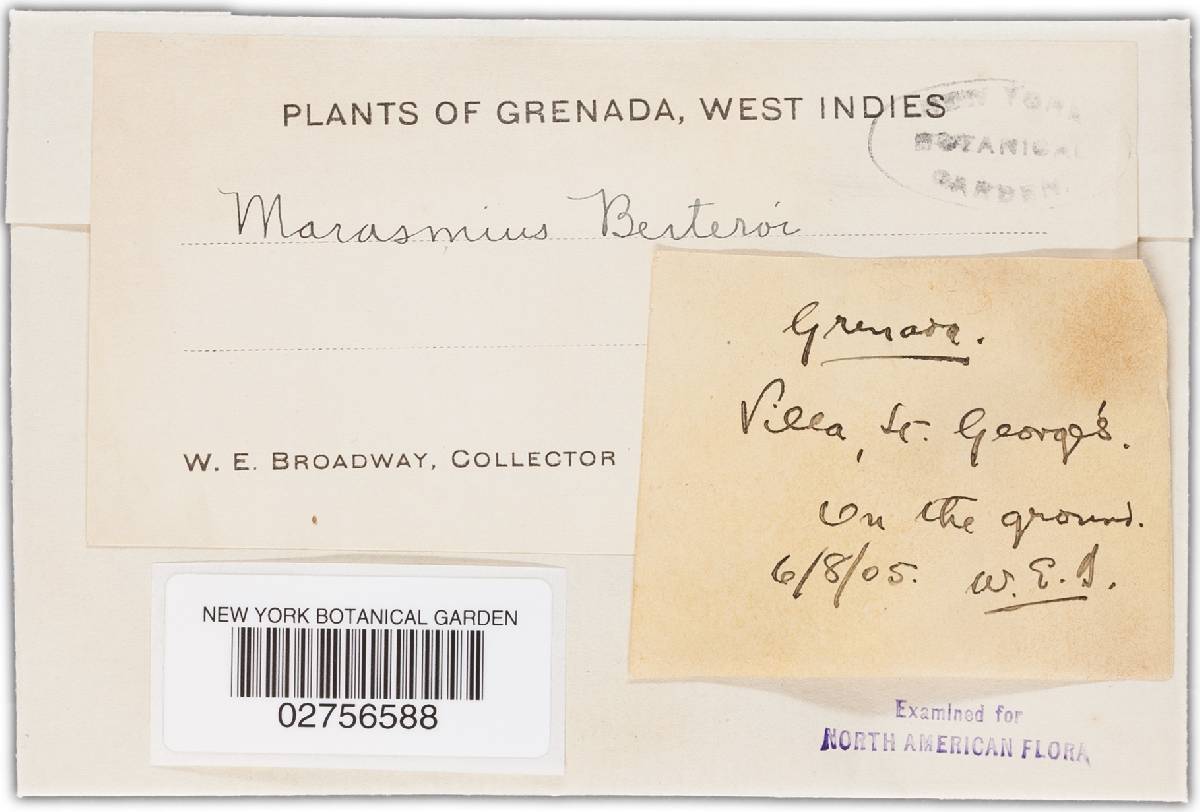 PLANTS OF GRENADA, WEST INDIES
NEW YORK
BOTANICAL
GARDEN.
Marasmius Berteroi
Grenada.
Villa, St. George's.
On the ground.
6/8/05. W. E. B.
W. E. BROADWAY, COLLECTOR
NEW YORK BOTANICAL GARDEN
02756588
Examined for
NORTH AMERICAN FLORA